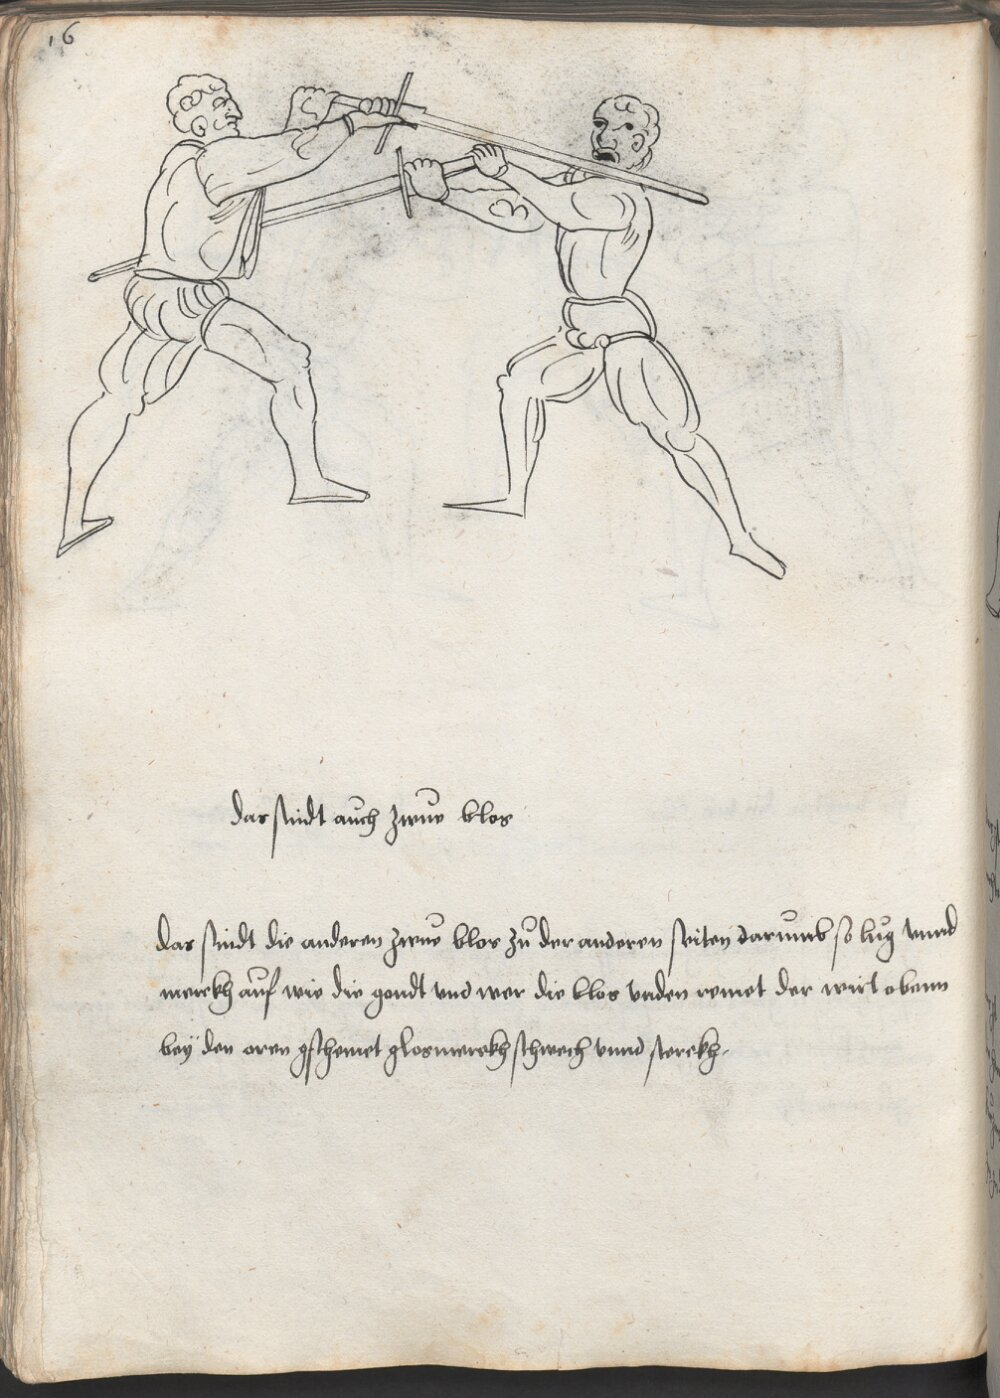 16
das sindt auch zwuo blos
das sindt die anderen zwuo blos zu der anderen seiten darumb so lug vnnd
merckh auf wie die gondt vnd wer die blos vnden remet der wirt obenn
bey den oren gschemet glosmerckh schwech vnnd sterckh.